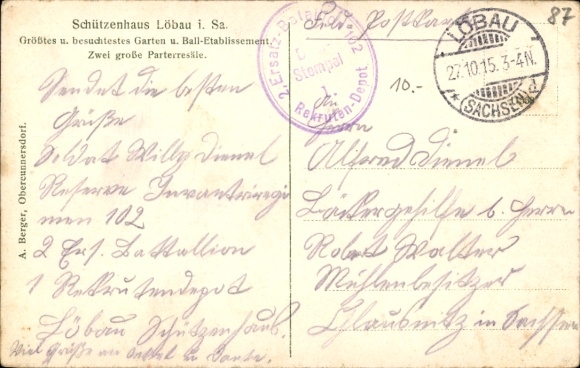 Schützenhaus Löbau i. Sa.
Größtes u. besuchtestes Garten u. Ball-Etablissement.
Zwei große Parterresäle.
A. Berger, Obercunnersdorf.
Sendet die besten
Grüße
Soldat Willy Dienel
Reserve Invantriregi
men 102
2 Ers. Battallion
1 Rekrutendepot
Löbau Schützenhaus.
Viel Grüße an Onkel u Tante.
2. Ersatz-Bataillon 102
Stempel
1.
Rekruten-Depot
Feld-Postkarte
LÖBAU
27.10.15. 3-4N.
* (SACHSEN)
87
10.-
An
Herrn
Alfred Dienel
Bäckergehilfe b. Herrn
Robert Walter
Mühlenbesitzer
Glausnitz in Sachsen